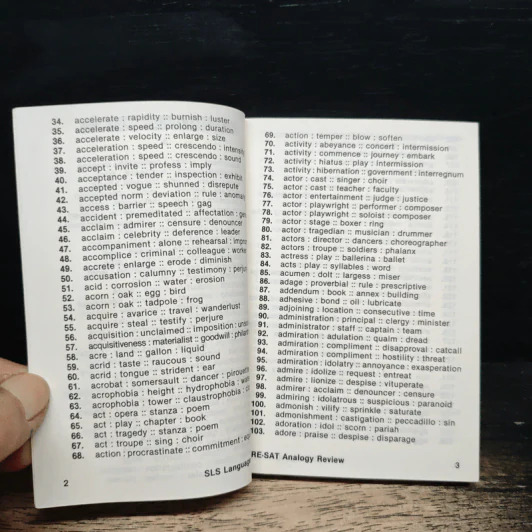 34. accelerate : rapidity :: burnish : luster
35. accelerate : speed :: prolong : duration
36. accelerate : velocity :: enlarge : size
37. acceleration : speed :: crescendo : intensity
38. acceleration : speed :: crescendo : sound
39. accept : invite :: profess : imply
40. acceptance : tender :: inspection : exhibit
41. accepted : vogue :: shunned : disrepute
42. accepted norm : deviation :: rule : anomaly
43. access : barrier :: speech : gag
44. accident : premeditated :: affectation :
45. acclaim : admirer :: censure : denouncer
46. acclaim : celebrity :: deference : leader
47. accompaniment : alone :: rehearsal :
48. accomplice : criminal :: colleague : worker
49. accrete : enlarge :: erode : diminish
50. accusation : calumny :: testimony : perjury
51. acid : corrosion :: water : erosion
52. acorn : oak :: egg : bird
53. acorn : oak :: tadpole : frog
54. acquire : avarice :: travel : wanderlust
55. acquire : steal :: testify : perjure
56. acquisition : unclaimed :: imposition :
57. acquisitiveness : materialist :: goodwill :
58. acre : land :: gallon : liquid
59. acrid : taste :: raucous : sound
60. acrid : tongue :: strident : ear
61. acrobat : somersault :: dancer : pirouette
62. acrophobia : height :: hydrophobia :
63. acrophobia : tower :: claustrophobia :
64. act : opera :: stanza : poem
65. act : play :: chapter : book
66. act : tragedy :: stanza : poem
67. act : troupe :: sing : choir
68. action : procrastinate :: commitment :
2 SLS Language
69. action : temper :: blow : soften
70. activity : abeyance :: concert : intermission
71. activity : commence :: journey : embark
72. activity : hiatus :: play : intermission
73. activity : hibernation :: government : interregnum
74. actor : cast :: singer : choir
75. actor : cast :: teacher : faculty
76. actor : entertainment :: judge : justice
77. actor : playwright :: performer : composer
78. actor : playwright :: soloist : composer
79. actor : stage :: boxer : ring
80. actor : tragedian :: musician : drummer
81. actors : director :: dancers : choreographer
82. actors : troupe :: soldiers : phalanx
83. actress : play :: ballerina : ballet
84. acts : play :: syllables : word
85. acumen : dolt :: largess : miser
86. adage : proverbial :: rule : prescriptive
87. addendum : book :: annex : building
88. adhesive : bond :: oil : lubricate
89. adjoining : location :: consecutive : time
90. administration : principal :: clergy : minister
91. administrator : staff :: captain : team
92. admiration : adulation :: qualm : dread
93. admiration : compliment :: disapproval : catcall
94. admiration : compliment :: hostility : threat
95. admiration : idolatry :: annoyance : exasperation
96. admire : idolize :: request : entreat
97. admire : lionize :: despise : vituperate
98. admirer : acclaim :: denouncer : censure
99. admiring : idolatrous :: suspicious : paranoid
100. admonish : vilify :: sprinkle : saturate
101. admonishment : castigation :: peccadillo : sin
102. adoration : idol :: scorn : pariah
103. adore : praise :: despise : disparage
RE-SAT Analogy Review 3